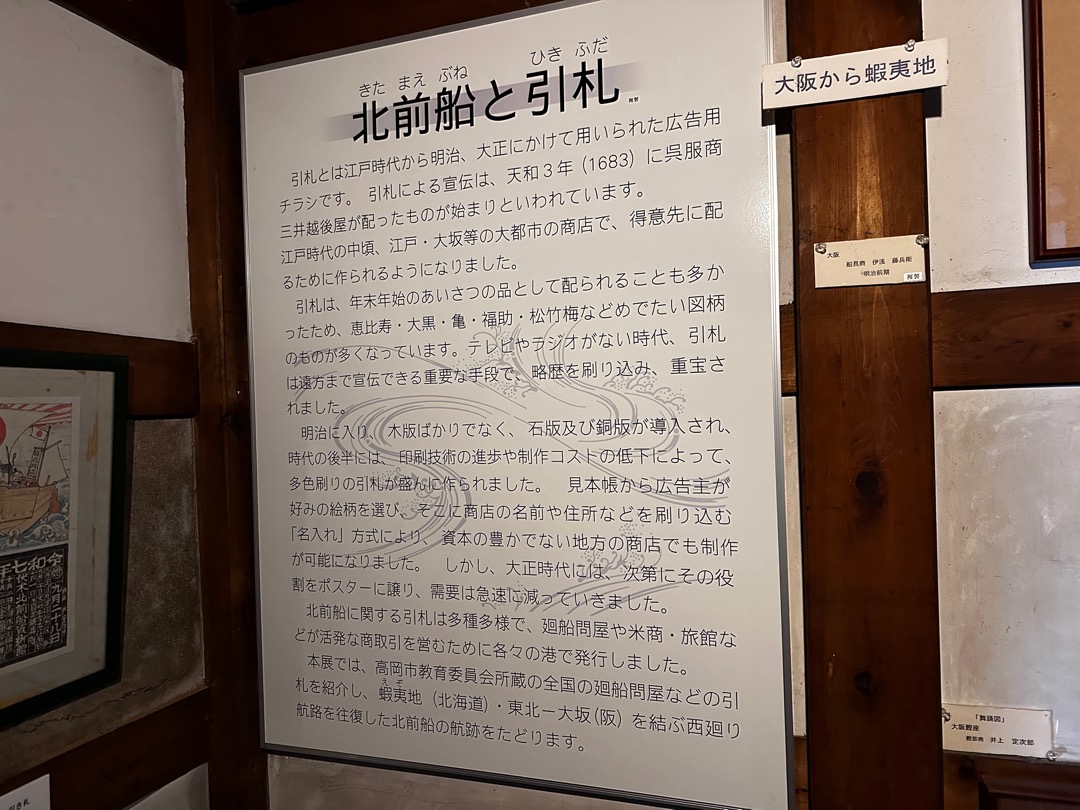 きた まえ ぶね ひき ふだ
北前船と引札 複製
引札とは江戸時代から明治、大正にかけて用いられた広告用
チラシです。 引札による宣伝は、天和3年(1683)に呉服商
三井越後屋が配ったものが始まりといわれています。
江戸時代の中頃、江戸・大坂等の大都市の商店で、得意先に配
るために作られるようになりました。
引札は、年末年始のあいさつの品として配られることも多か
ったため、恵比寿・大黒・亀・福助・松竹梅などめでたい図柄
のものが多くなっています。テレビやラジオがない時代、引札
は遠方まで宣伝できる重要な手段で、略歴を刷り込み、重宝さ
れました。
明治に入り、木版ばかりでなく、石版及び銅版が導入され、
時代の後半には、印刷技術の進歩や制作コストの低下によって、
多色刷りの引札が盛んに作られました。 見本帳から広告主が
好みの絵柄を選び、そこに商店の名前や住所などを刷り込む
「名入れ」方式により、資本の豊かでない地方の商店でも制作
が可能になりました。 しかし、大正時代には、次第にその役
割をポスターに譲り、需要は急速に減っていきました。
北前船に関する引札は多種多様で、廻船問屋や米商・旅館な
どが活発な商取引を営むために各々の港で発行しました。
本展では、高岡市教育委員会所蔵の全国の廻船問屋などの引
えぞ
札を紹介し、蝦夷地(北海道)・東北ー大坂(阪)を結ぶ西廻り
航路を往復した北前船の航跡をたどります。
大阪から蝦夷地
大阪
船具商 伊浅 藤兵衛
明治前期 複製
「舞踊図」
大阪鰹座
鰹節商 井上 定次郎
引き札